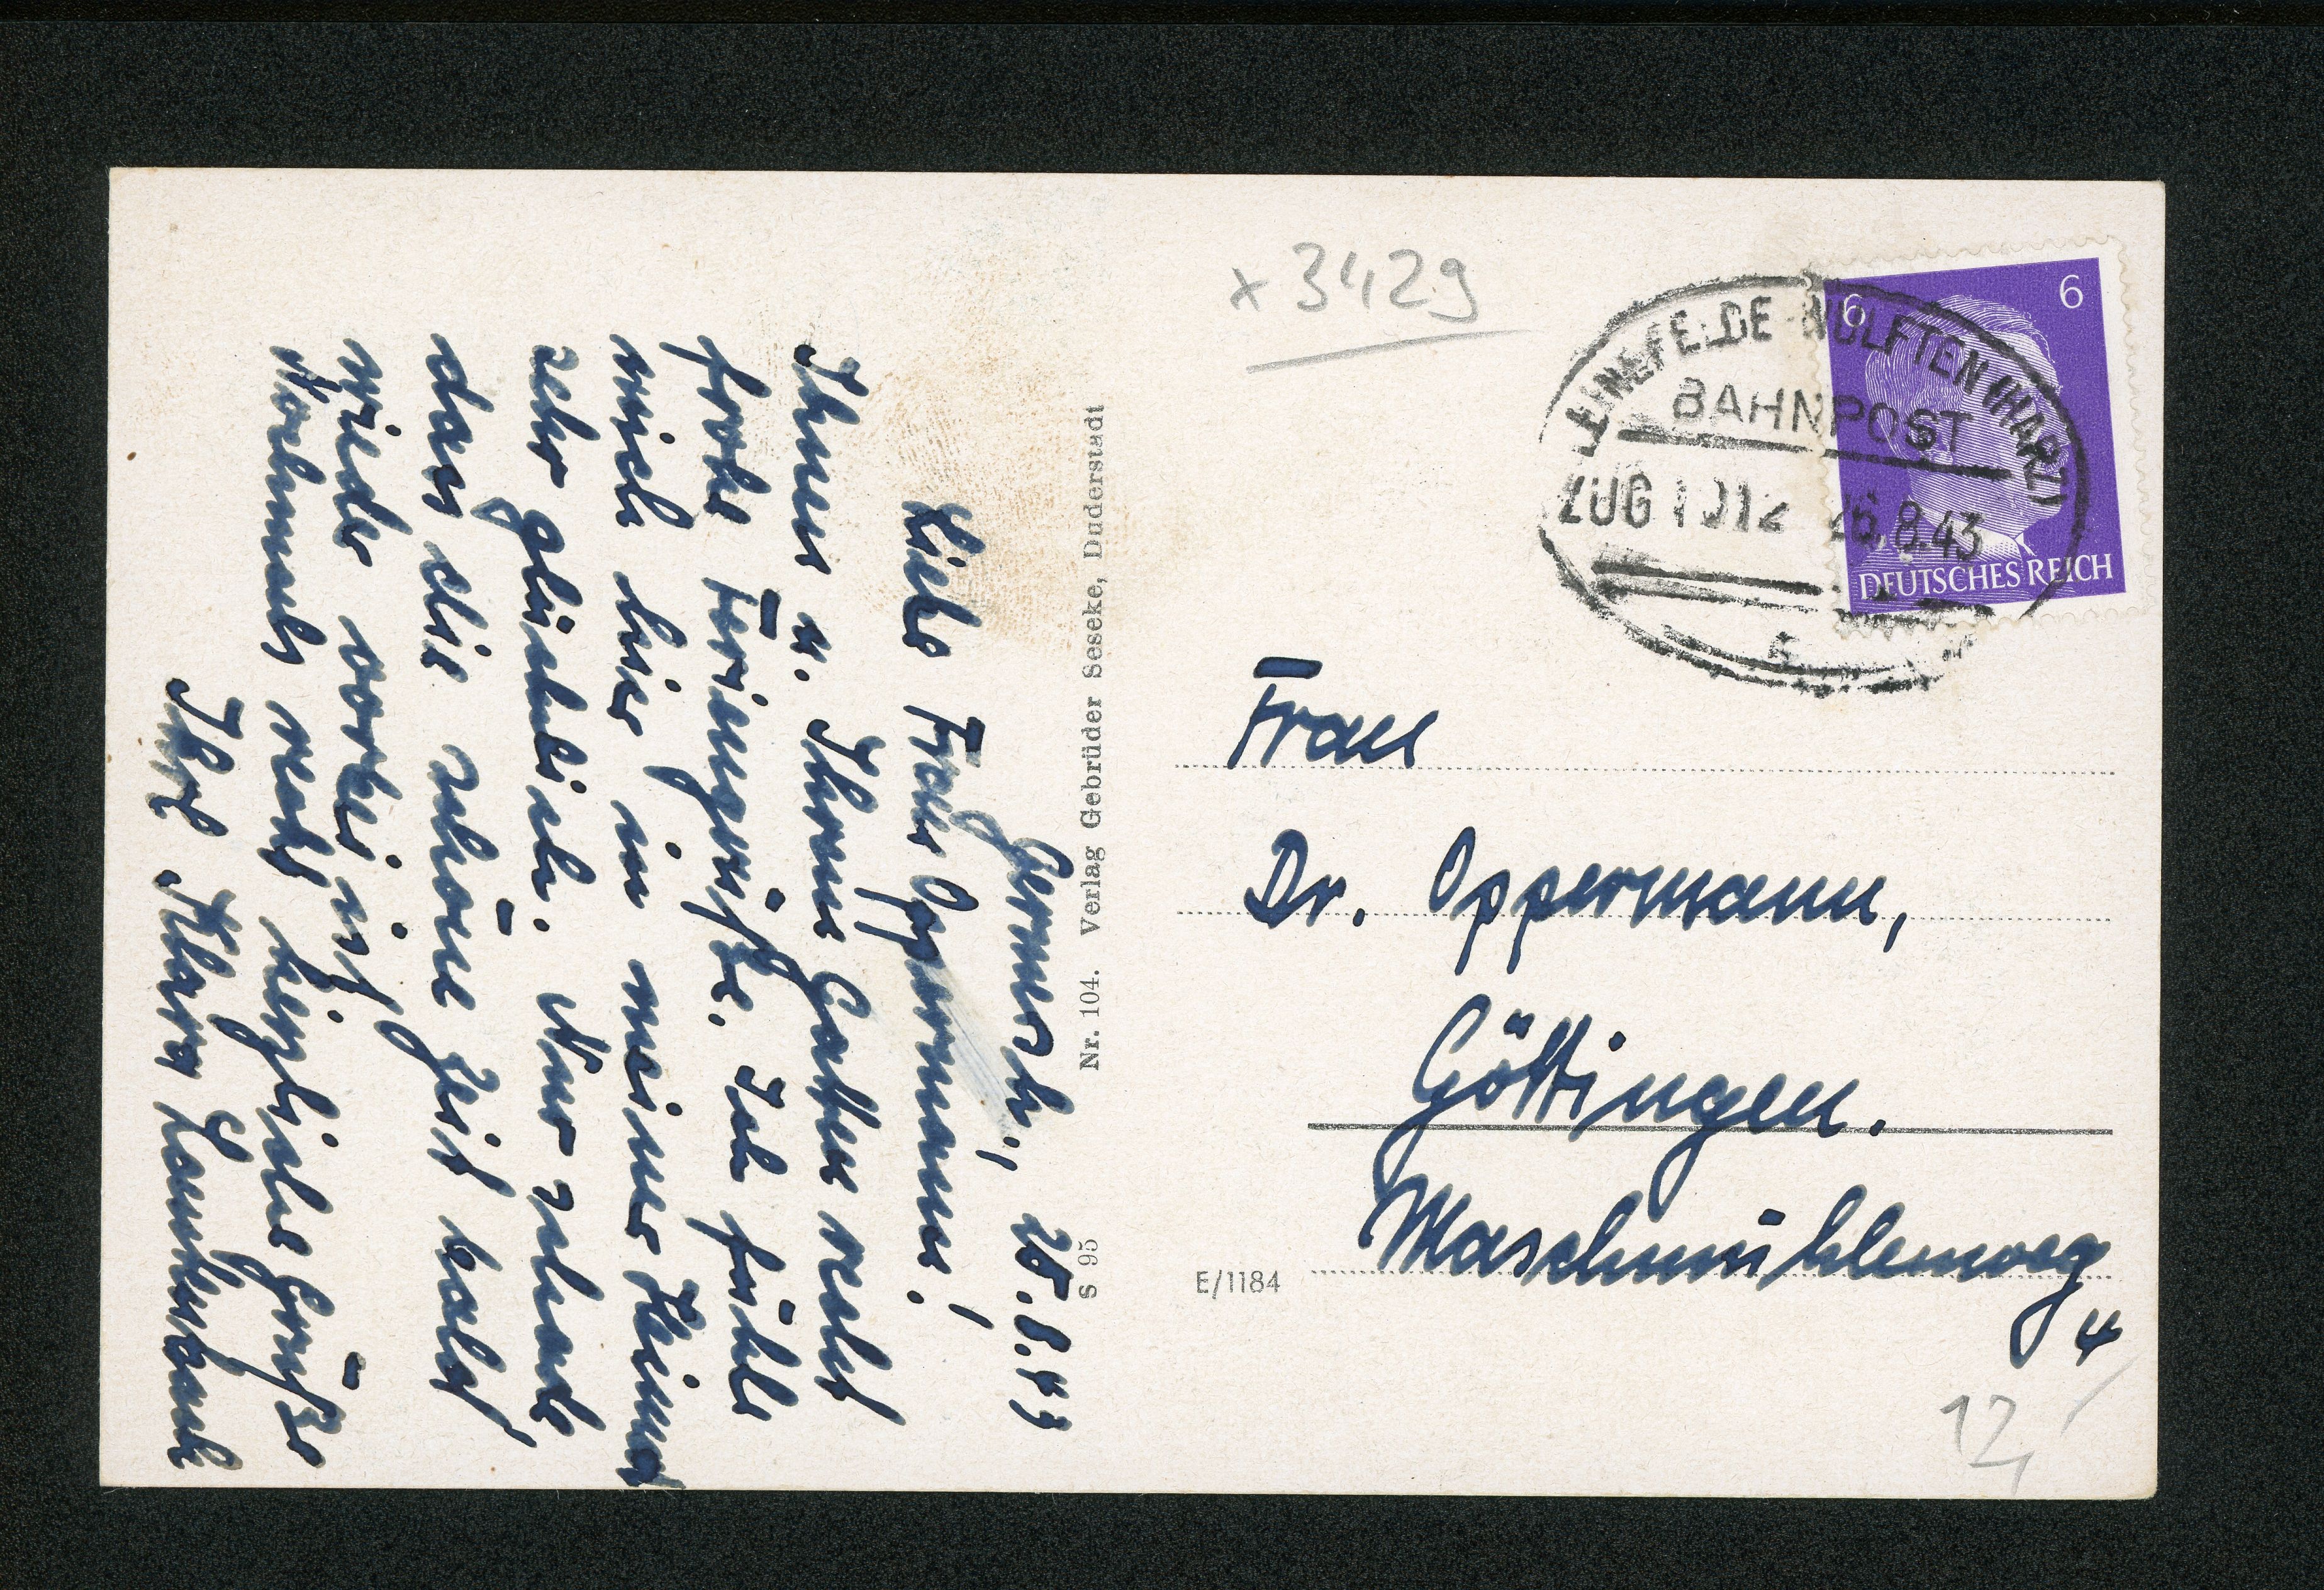 Germersh., 25.8.43
Liebe Frau Oppermann!
Ihnen u. Ihrem Gatten recht
frohe Feriengrüße. Ich fühle
mich hier in meiner Heimat
sehr glücklich. Nur schade
dass die schöne Zeit bald
wieder vorbei ist,
Nochmals recht herzliche Grüße
Ihre Klara
Nr. 104. Verlag Gebrüder Seseke, Duderstadt
S 95
x 3429
6 6
DEUTSCHES REICH
LEINEFELDE-WULFTEN (HARZ)
BAHNPOST
ZUG 1912 26.8.43
Frau
Dr. Oppermann,
Göttingen.
Maschmühlenweg
4
E/1184
12,